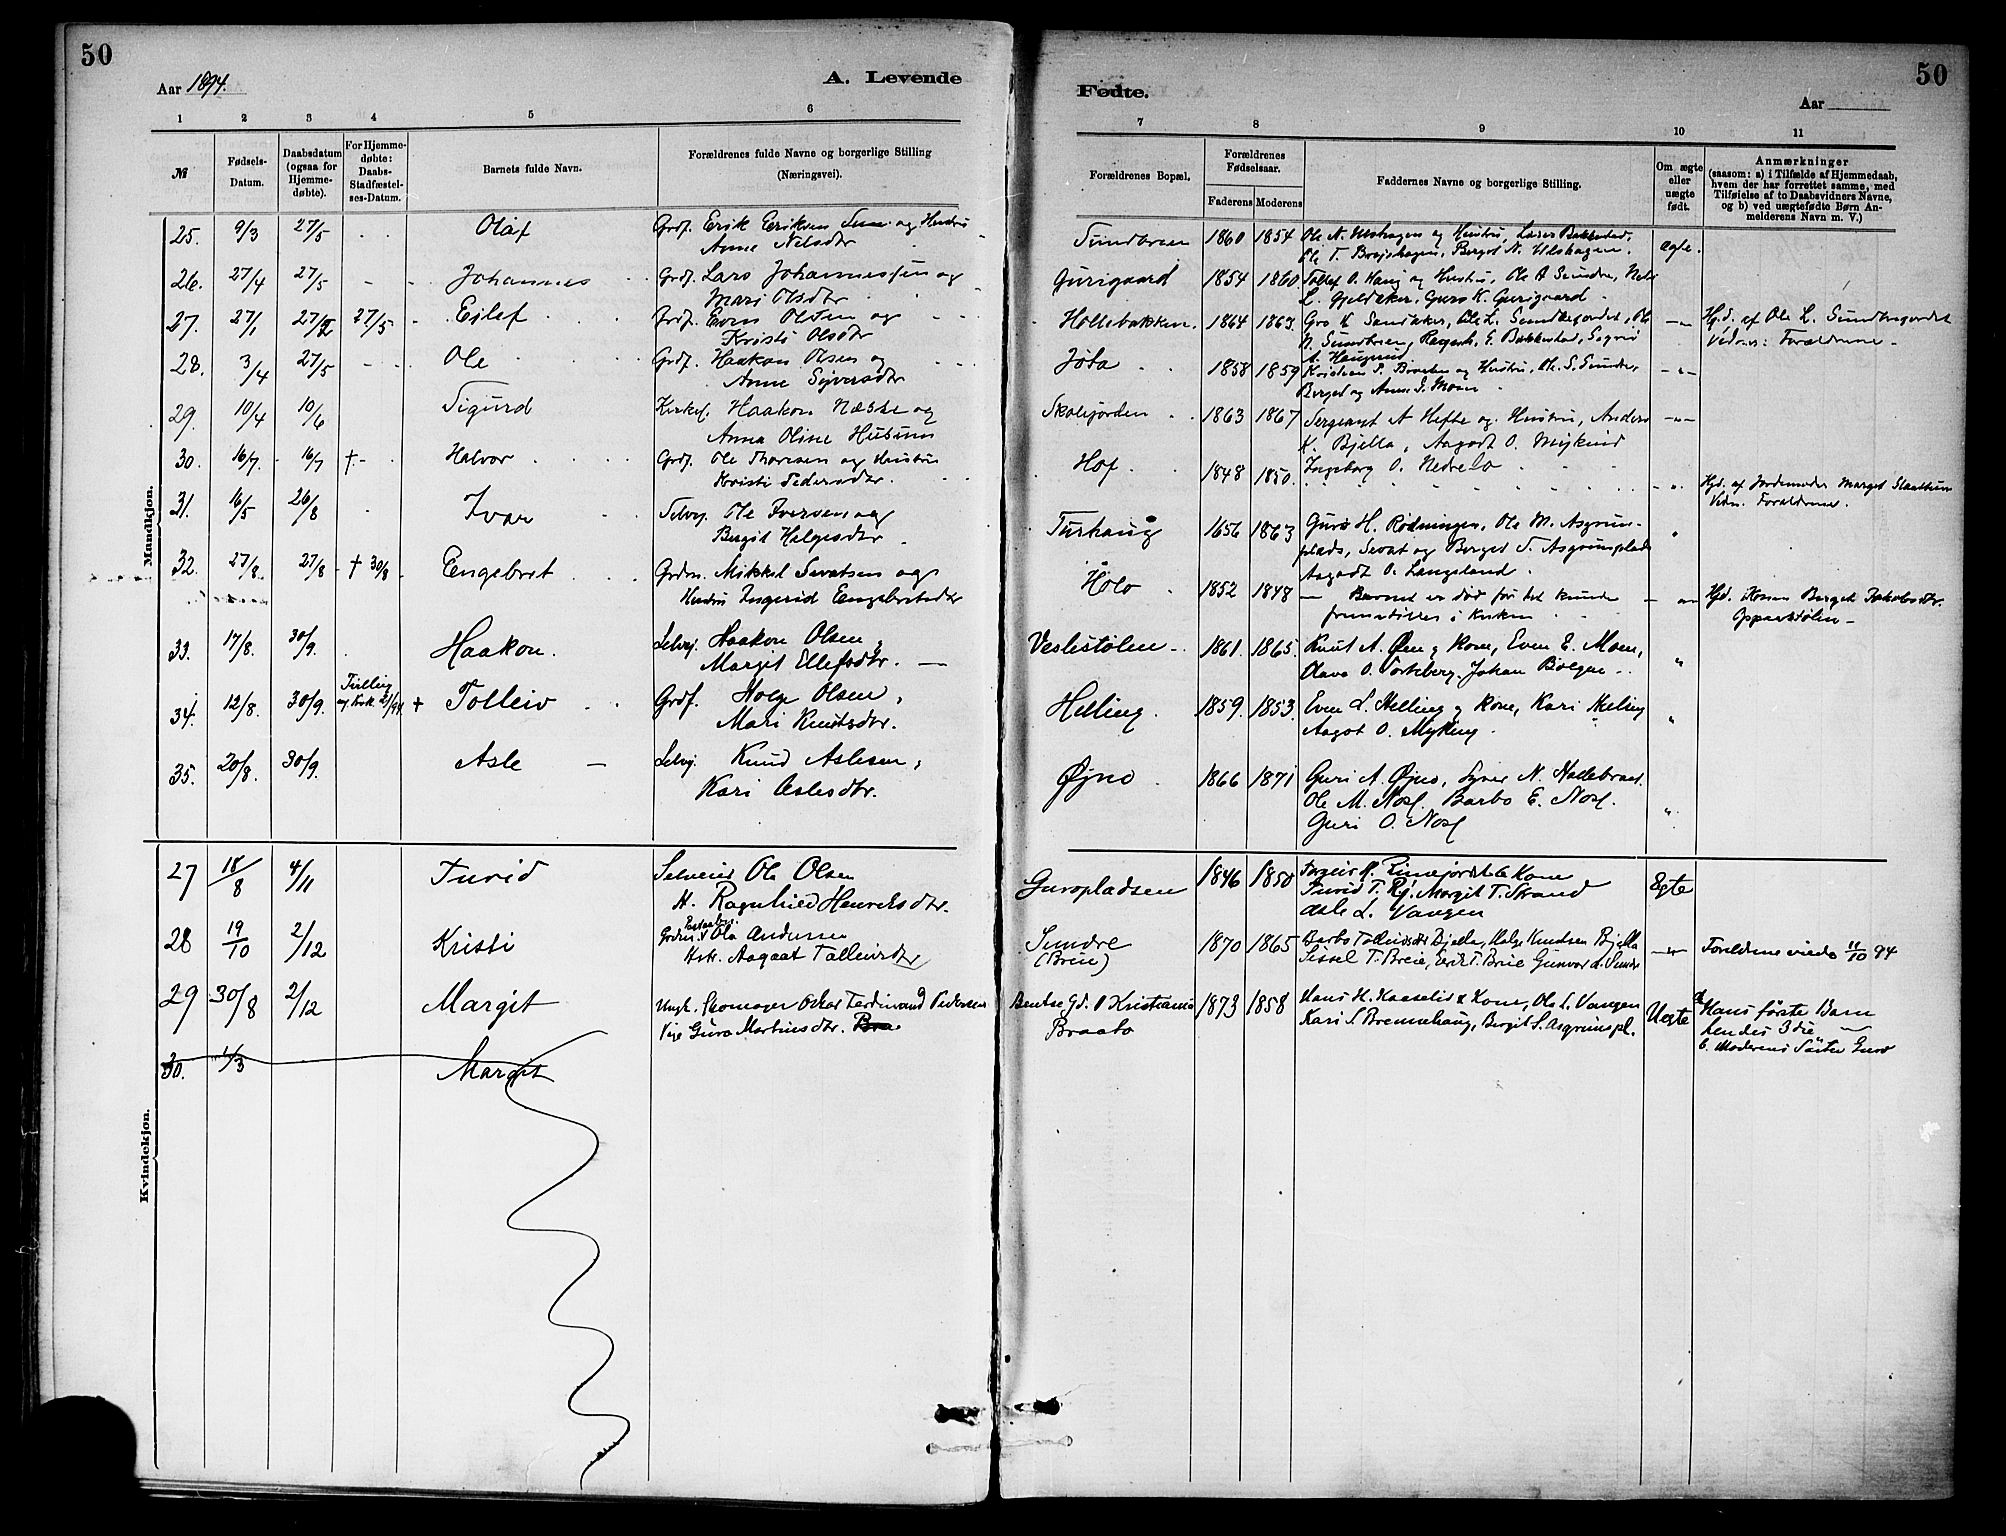 50
50
Aar 1894.
A. Levende
Fødte.
Aar
1 2 3 4 5 6 7 8 9 10 11
№
Fødsels-
Datum.
Daabsdatum
(ogsaa for
Hjemme-
døbte).
For Hjemme-
døbte:
Daabs-
Stadfæstel-
ses-Datum.
Barnets fulde Navn.
Forældrenes fulde Navne og borgerlige Stilling
(Næringsvei).
Forældrenes Bopæl.
Forældrenes
Fødselsaar.
Faderens Moderens
Faddernes Navne og borgerlige Stilling.
Om ægte
eller
uægte
født.
Anmærkninger
(saasom: a) i Tilfælde af Hjemmedaab,
hvem der har forrettet samme, med
Tilføielse af to Daabsvidners Navne,
og b) ved uægtefødte Børn An-
melderens Navn m. V.)
Mandkjøn.
25. 9/3 27/5 Olaf Grdf. Erik Eriksen og Hustru
Anne Nilsdtr
Sundbreen 1860 1854 Ole N. Ulshagen og Hustru, Lars Bakkestad,
Ole T. Brejehagen, Berget N. Ulshagen. ægte.
26. 27/4 27/5 Johannes Grdf. Lars Johannessen og
Mari Olsdtr
Gurigaard 1854 1860 Tollef O. Haug og Hustru, Ole A Sundre, Nils
L. Gjeldaker, Guro K. Gurigaard
27. 27/1 27/2 27/5 Eilef Grdf. Even Olsen og
Kristi Olsdtr
Hollebakken. 1864 1863. Gro K Sandaker, Ole L. Sundbregordet, Ole
N. Sundbreen, E. Bakkestad, Sigrid
A Haugrud
Hjd. af Ole L. Sundbregordet
Vidner: Forældrene
28. 3/4 27/5 Ole Grdf. Haakon Olsen og
Anne Sjversdtr
Jota 1858 1859 Kristian P. Braaten og Hustru, Ole S. Sundre,
Berget og Anne S. Moen
29. 10/4 10/6 Sigurd Kirkes. Haakon Næste og
Anna Oline Husum
Skolejorden 1863 1867 Sergeant A Hefte og Hustru, Anders
K. Bjella, Aagodt O. Myking
30. 16/7. 16/7 † Halvor Grdf. Ole Thoresen og Hustru
Kristi Pedersdtr.
Hof. 1848 1850. Ingeborg O. Nedrelo
Hjd. af Jordemoder Marget
Vidn. Forældrene.
31. 16/5 26/8 Ivar Selvej. Ole Iversen og
Bergit Helgesdtr
Turhaug 1656 1863 Guro H. Rødningen, Ole M. Asgrim-
plads, Sevat og Berget S. Asgrimsplads
Aagodt O. Langeland.
32. 27/8 27/8 † 30/8 Engebret Grdm. Mikkel Sevatsen og
Hustru Ingerid Engebretsdtr
Holo 1852 1848 — Barnet er død før det kunde
fremstilles i kirken
Hjd. Konen Berget Jakobsdtr.
33. 17/8. 30/9. Haakon. Selvej. Haakon Olsen,
Margit Ellefsdtr.
Veslestølen 1861. 1865. Knut A. Øen og Kone, Even E. Moen,
O. Torteberg. Johan Bølgen
34. 12/8. 30/9. + Tolleiv Grdf. Helge Olsen,
Mari Knutsdtr.
Helling. 1859. 1853. Even L. Helling og Kone, Kari Helling
Aagot O. Myking.
35. 20/8. 30/9. Asle Selvej. Knud Aslesen,
Kari Aslesdtr.
Øjno 1866 1871 Guri A. Øjno, Syver N. Hallebraat.
Ole M. Nos. Barbo E. Nos.
Guri O. Nos
Kvindekjøn.
27 18/8 4/11 Turid Selveier Ole Olsen
H. Ragnhild Henriksdtr.
Guropladsen 1846 1850 & Kone
Turid T. Margit T. Strand
Asle L. Vangen
Egte
28 19/10 2/12 Kristi Ola Andersen
Hstr. Aagaat Tolleivsdtr
Sundre
(Breie)
1870 1865 Barbo Tolleivsdtr Bjella, Helge Knudsen Bjella
Sissel T. Breie, Erik T. Breie Gunvor A. Sundre
Foreldrene viede 11/10 94
29 30/8 2/12 Margit Ungk. Skomager Oskar Ferdinand Pedersen
Pige Guro Martinsdtr.
Kristiania
Braato
1873 1858 Hans H. Haaselid & Kone, Ole L. Vangen
Kari S. Brennehaug, Bergit S. Asgrimspl.
Uegte
Hans første Barn
hendes 3die
b. Moderens Søster Guro
30. 1/3 Margit